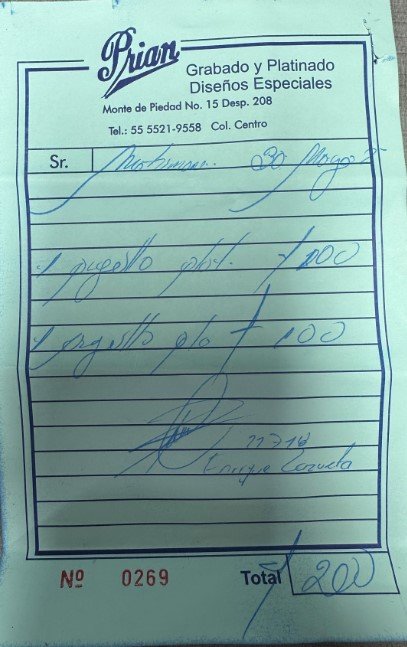 Prian
Grabado y Platinado
Diseños Especiales
Monte de Piedad No. 15 Desp. 208
Tel.: 55 5521-9558 Col. Centro
Sr. 30 Mayo
1 100
1 100
Enrique
Nº 0269 Total 200